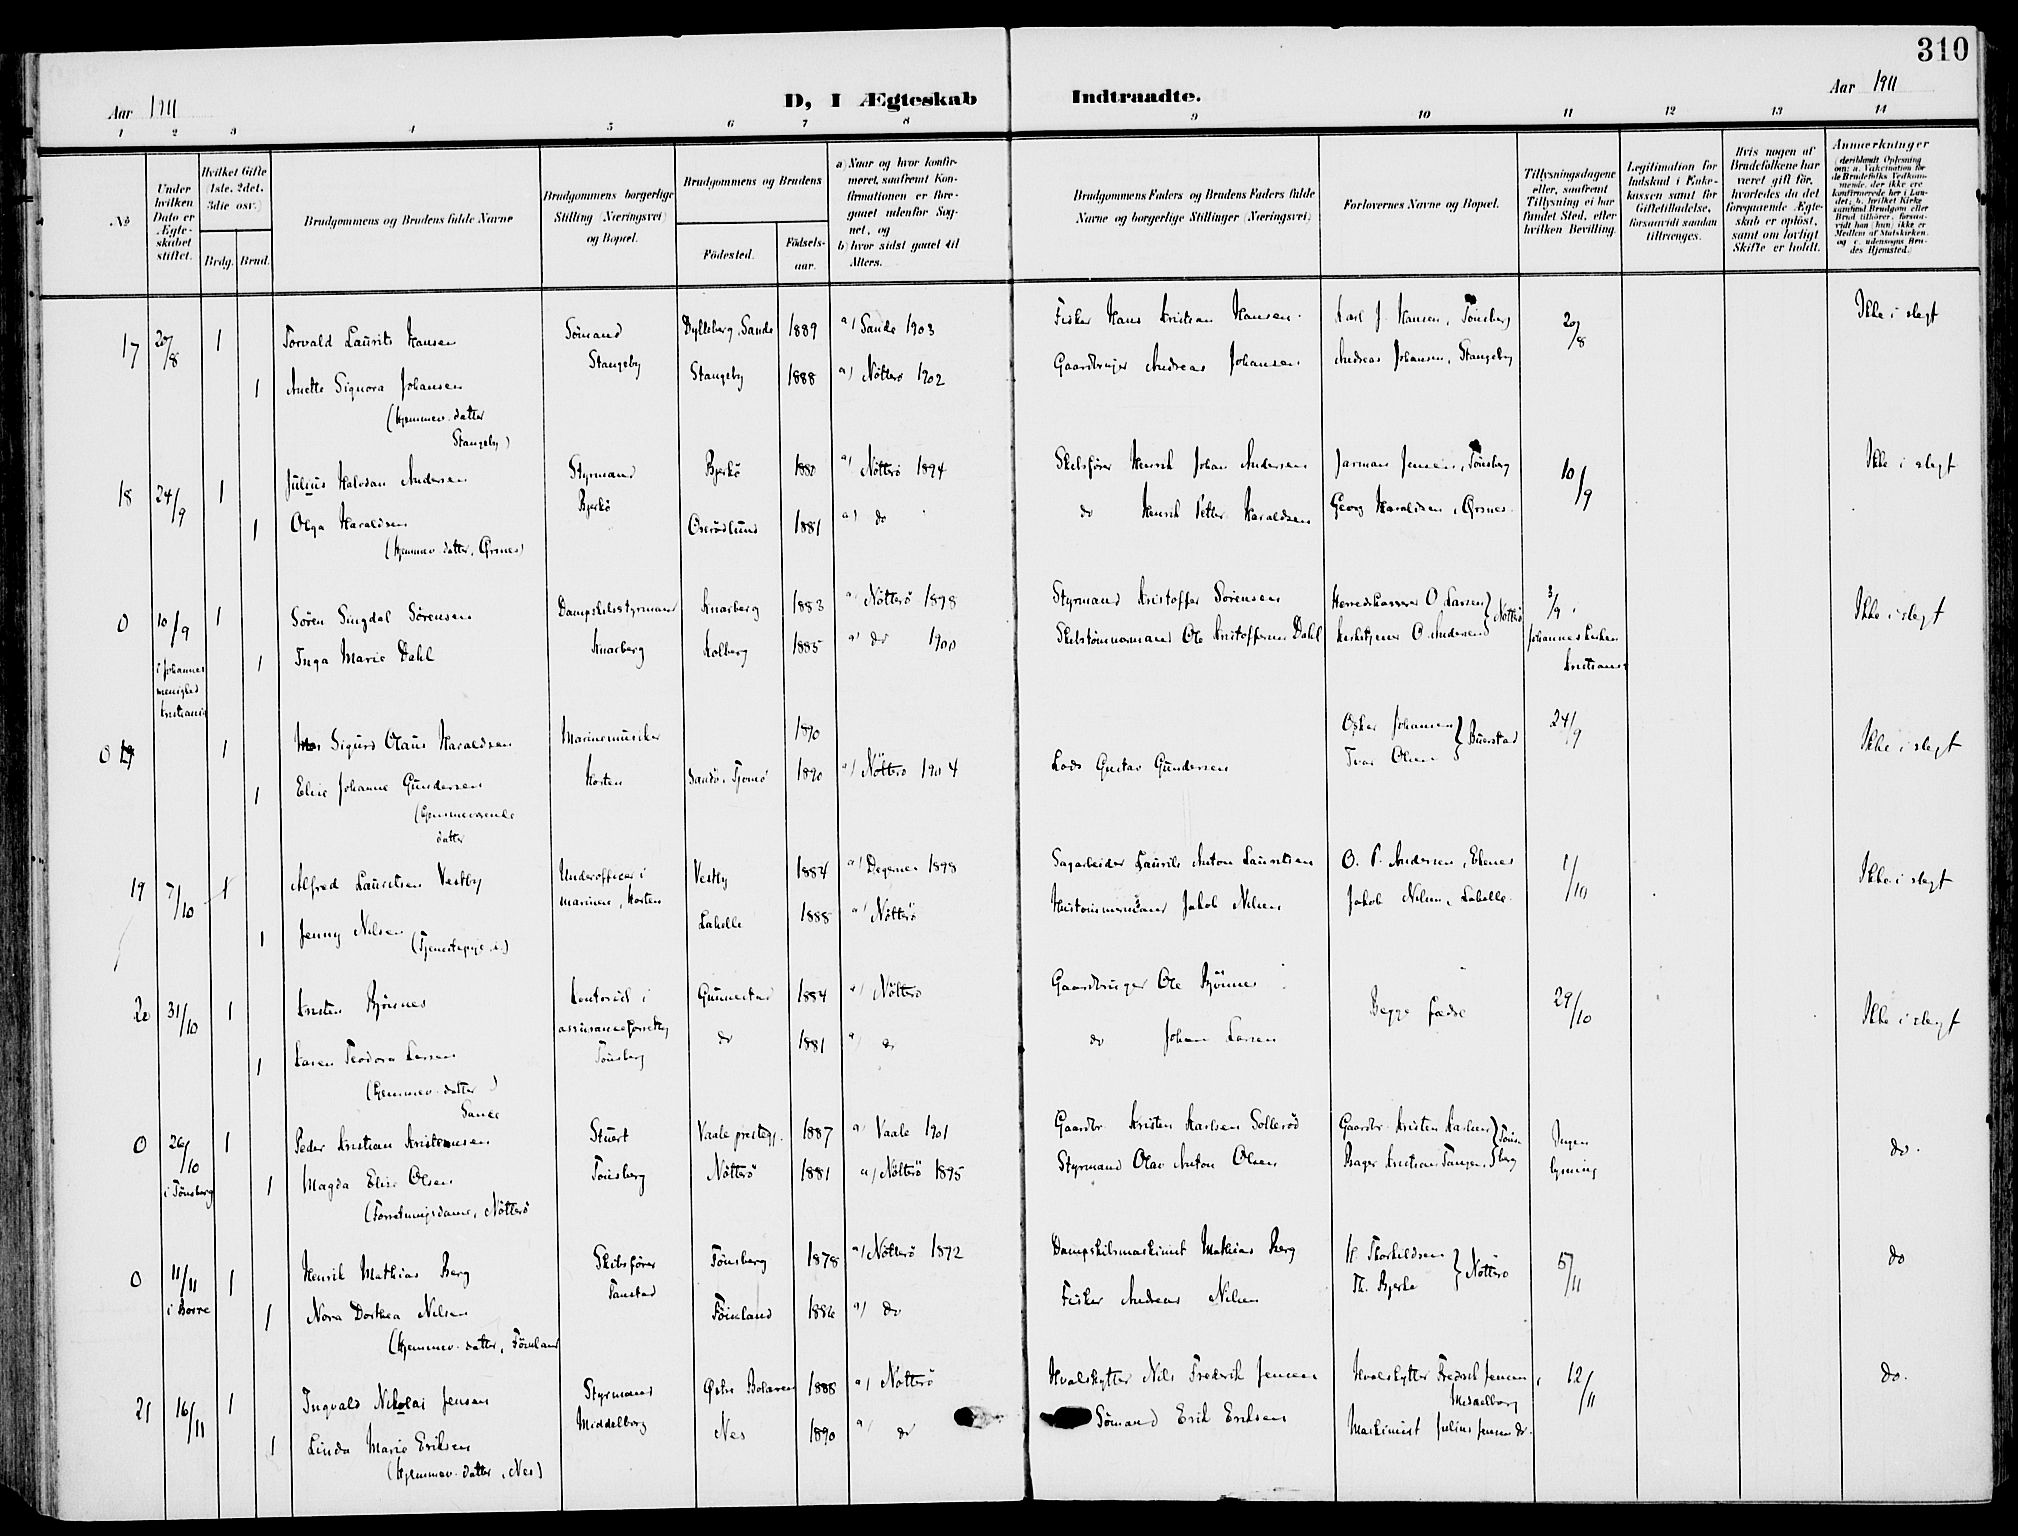 310
Aar 1911
D, I Ægteskab Indtraadte.
Aar 1911
1 2 3 4 5 6 7 8 9 10 11 12 13 14
No
Under hvilken Dato er Ægteskabet stiftet.
Hvilket Gifte (1ste, 2det, 3die osv.)
Brdg. Brud.
Brudgommens og Brudens fulde Navne
Brudgommens borgerlige Stilling (Næringsvei) og Bopæl.
Brudgommens og Brudens
Fødested.
Fødsels-aar.
a) Naar og hvor konfirmeret, saafremt Konfirmationen er foregaaet udenfor Sognet, og
b) hvor sidst gaaet til Alters.
Brudgommens Faders og Brudens Faders fulde Navne og borgerlige Stillinger (Næringsvei)
Forlovernes Navne og Bopæl.
Tillysningsdagene eller, saafremt Tillysning ei har fundet Sted, efter hvilken Bevilling.
Legitimation for Indskud i Enkekassen samt for Giftetilladelse, forsaavidt saadan tiltrænges.
Hvis nogen af Brudefolkene har været gift før, hvorledes da det foregaaende Ægteskab er opløst, samt om lovligt Skifte er holdt.
Anmærkninger
17 20/8 1 Torvald Laurits Hansen Sømand Stangeby Sande 1889 a) Sande 1903 Fisker Hans Kristian Hansen Karl J. Hansen, Tønsberg 20/8 Ikke i slegt
1 Anette Signora Johansen Stangeby 1888 a) Nøtterø 1902 Gaardbruger Andreas Johansen Andreas Johansen, Stangeby
(hjemmev. datter
Stangeby)
18 24/9 1 Julius Halvdan Andersen Styrmand Bjerkø Bjerkø 1880 a) Nøtterø 1894 Skibsfører Henrik Johan Andersen Jensen, Tønsberg 10/9 Ikke i slegt
1 Olga Haraldsen 1881 a) do do Henrik Petter Haraldsen Georg Haraldsen, Ørsnes
(hjemmev. datter, Ørsnes)
0 10/9 1 Søren Singdal Sørensen Dampskibsstyrmand Knarberg Knarberg 1883 a) Nøtterø 1898 Styrmand Kristoffer Sørensen Herredskasserer O. Larsen 3/9 Ikke i slegt
i Johannes menighed Kristiania 1 Inga Marie Dahl Kolberg 1885 a) do 1900 Skibstømmermand Ole Kristoffersen Dahl Kirketjener O. Andersen } Nøtterø Johanneskirken Kristiania
0 1 Sigurd Olaus Haraldsen Marinemusiker Horten 1890 Oskar Johansen 24/9 Ikke i slegt
1 Elise Johanne Gundersen Sandø, Tjømø 1890 a) Nøtterø 1904 Lods Gustav Gundersen Ivar Olsen } Buerstad
(hjemmeværende
datter
19 7/10 1 Alfred Lauritsen Vestby Underofficer i marinen, Horten Vestby 1884 a) Degernes 1898 Sagarbeider Laurits Anton Lauritsen O. P. Andersen, Elenes 1/10 Ikke i slegt
1 Jenny Nilsen Lahelle 1888 a) Nøtterø Hustømmermand Jakob Nilsen Jakob Nilsen, Lahelle
(Tjenestepige)
20 31/10 1 Kristen Bjønnes Kontorist i Tønsberg Gunnestad 1884 a) Nøtterø Gaardbruger Ole Bjønnes Begge fedre 29/10 Ikke i slegt
1 Karen Teodora Larsen do 1881 a) do do Johan Larsen
(hjemmev. datter)
0 26/10 1 Peder Kristian Kristensen Stuert Tønsberg Vaale prestegj. 1887 a) Vaale 1901 Gaardbr. Kristen Karlsen Sollerød Gaardbr. Kristen Karlsen Ingen lysning do.
i Tønsberg 1 Magda Elise Olsen Nøtterø 1881 a) Nøtterø 1895 Styrmand Olav Anton Olsen Bager Kristian } Tønsberg
(Forretningsdame, Nøtterø
0 11/11 1 Henrik Mathias Berg Skibsfører Tønsberg 1878 a) Nøtterø 1892 Dampskibsmaskinist Mathias Berg H. Thorkildsen 5/11 do
i Borre 1 Nora Dorthea Nilsen Føinland 1886 a) do Fisker Andreas Nilsen Th. Bjerke } Nøtterø
(hjemmev. datter, Føinland
21 16/11 1 Ingvald Nikolai Jensen Styrmand Middelborg Østre Bolæren 1888 a) Nøtterø Hvalskytter Nils Fredrik Jensen Hvalskytter Fredrik Jensen, Middelborg 12/11 do.
1 Linda Marie Eriksen Nes 1890 a) do Sømand Erik Eriksen Maskinist Julius Jensen do.
(hjemmev. datter, Nes)